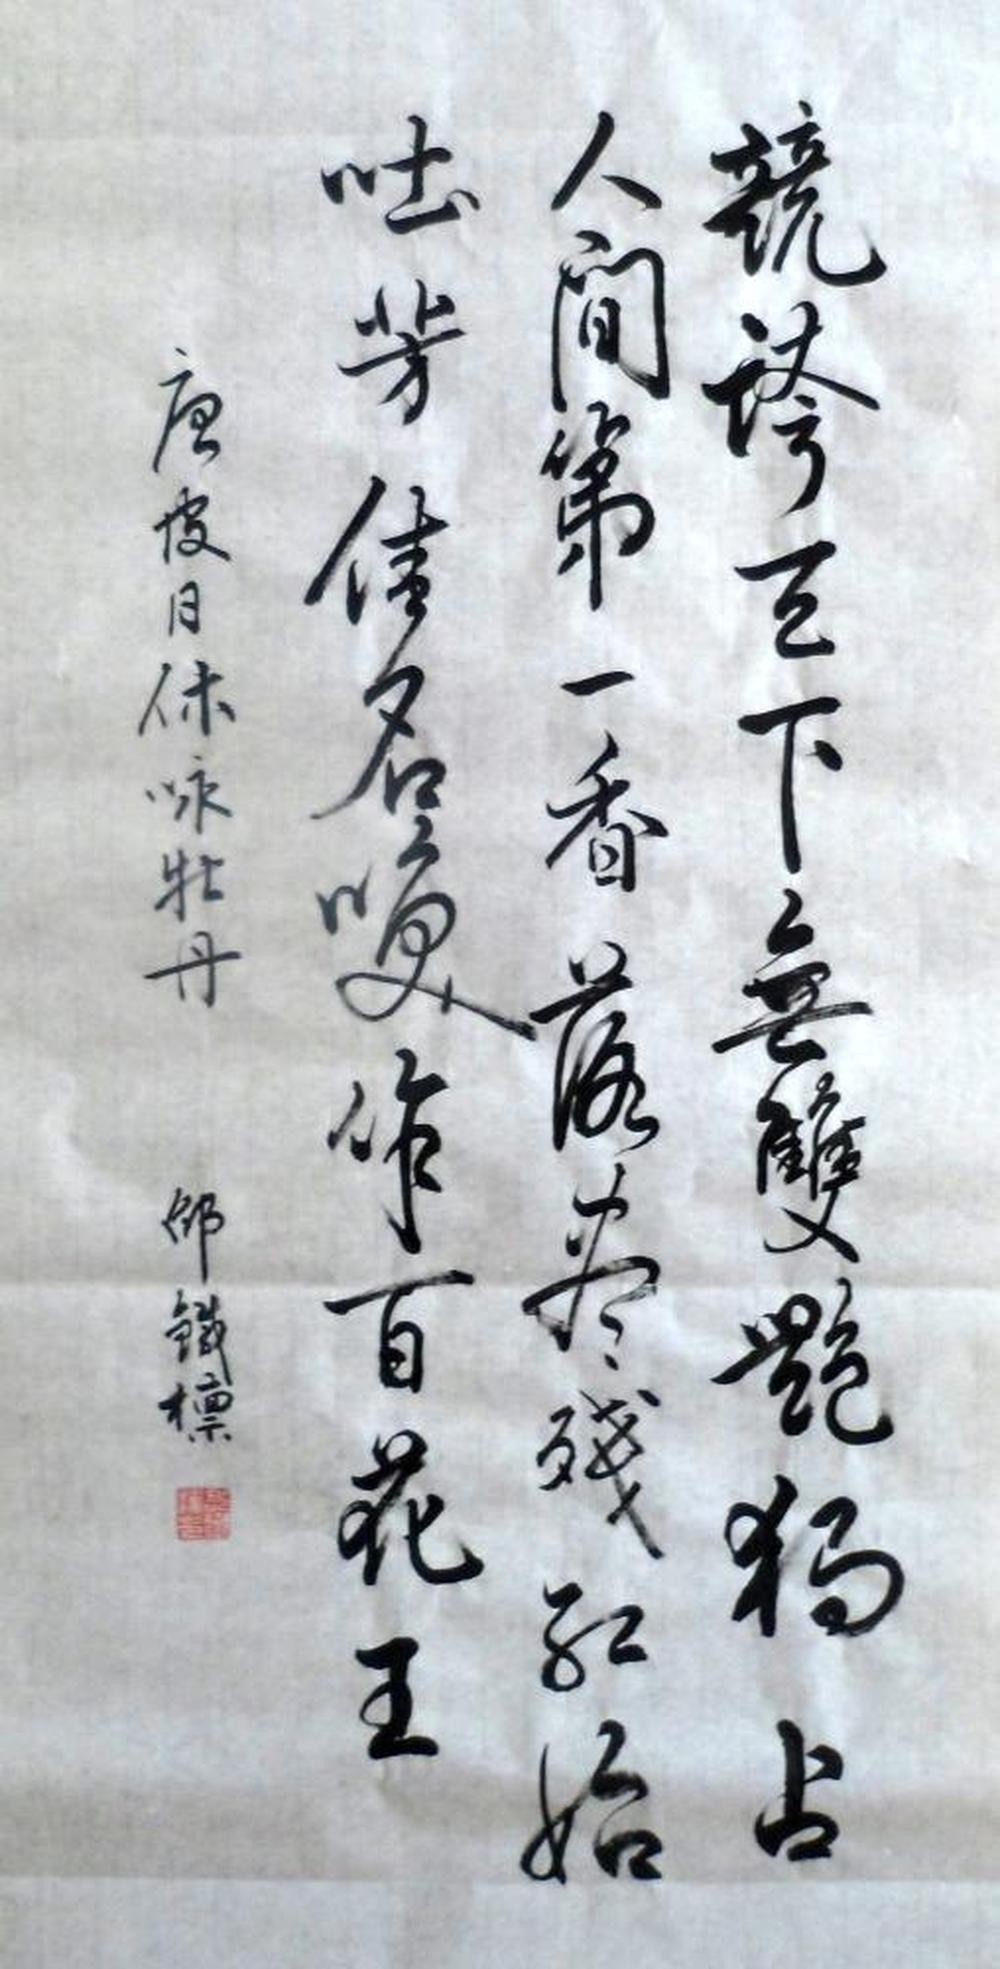 競誇天下無雙艷獨占
人間第一香落尽残紅始
吐芳佳名喚作百花王
唐皮日休咏牡丹
邵鐵標